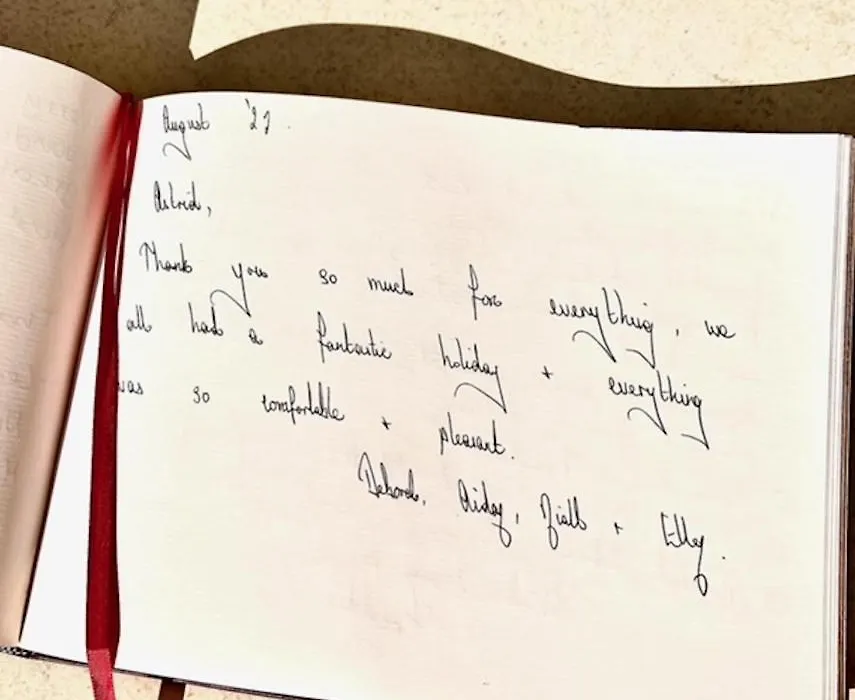 August '27.
Astrid,
Thank you so much for everything, we
all had a fantastic holiday + everything
was so comfortable + pleasant.
Deborah, , + Elley.